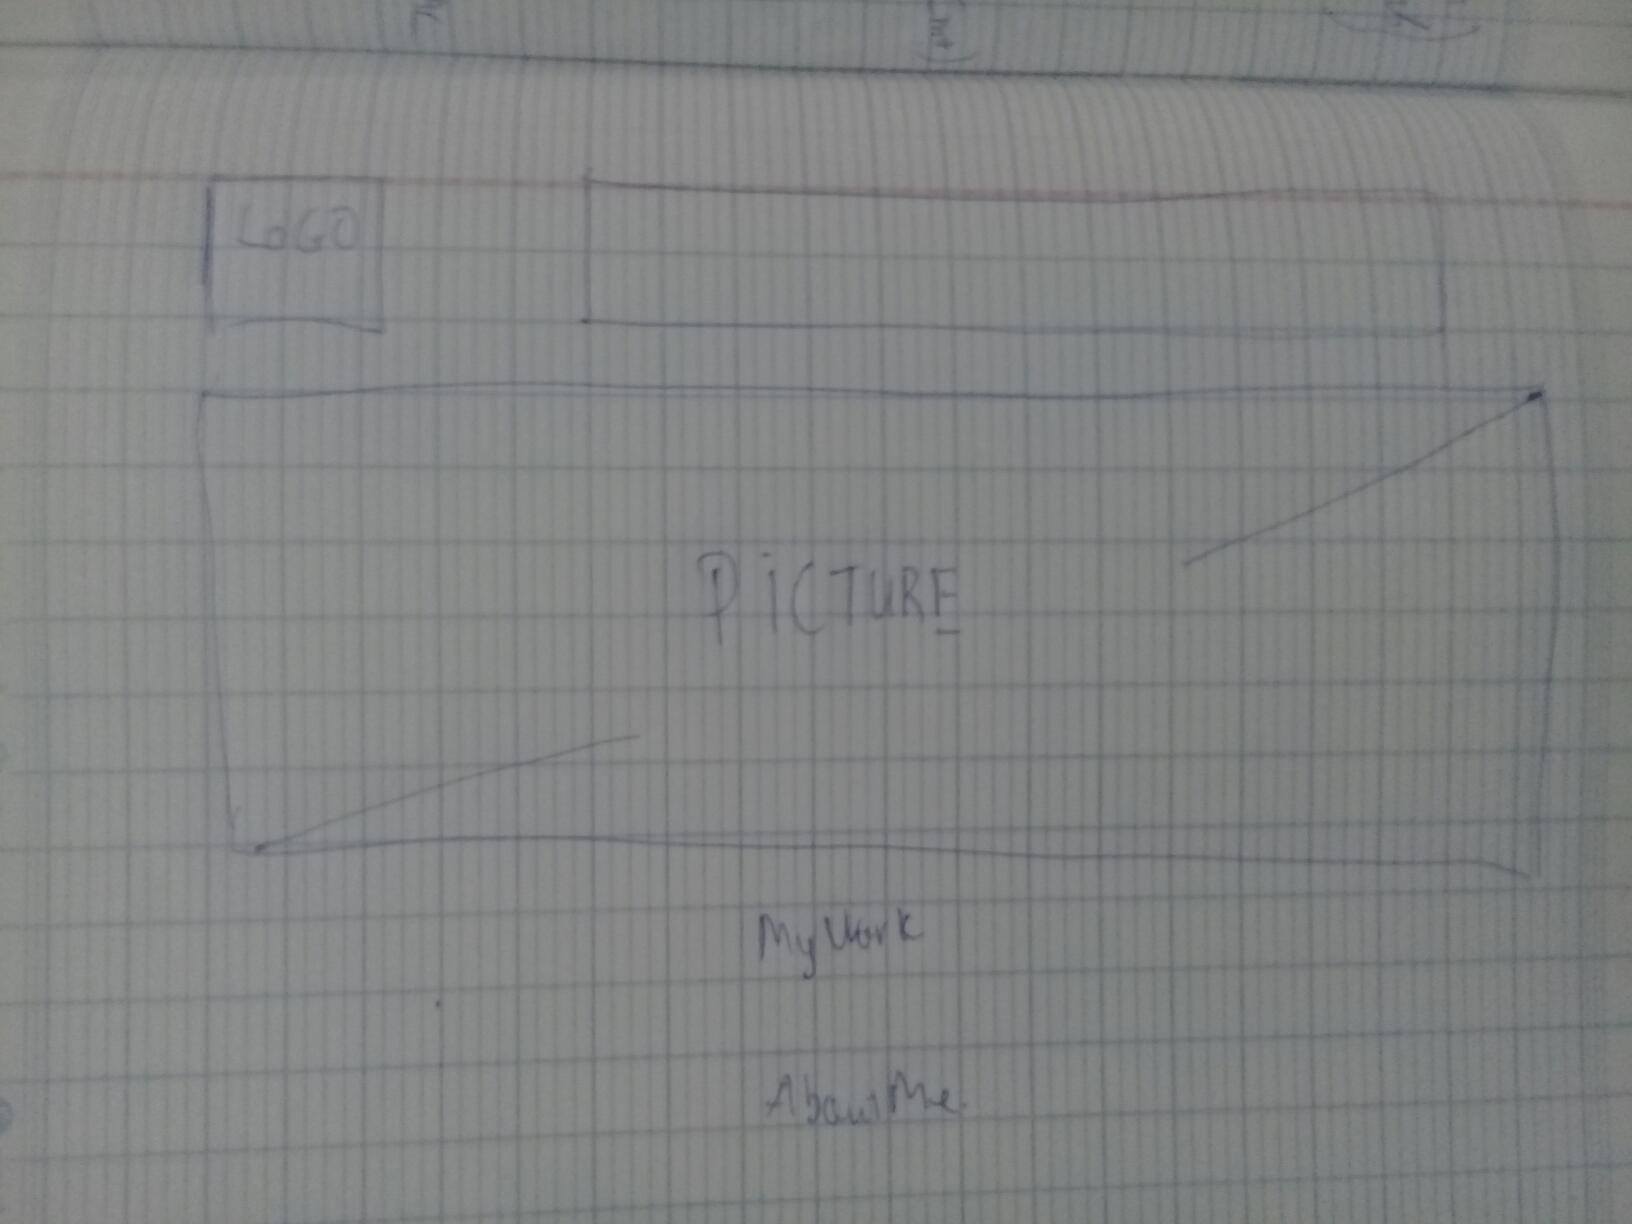 LOGO
PiCTURE
My Work
About Me.